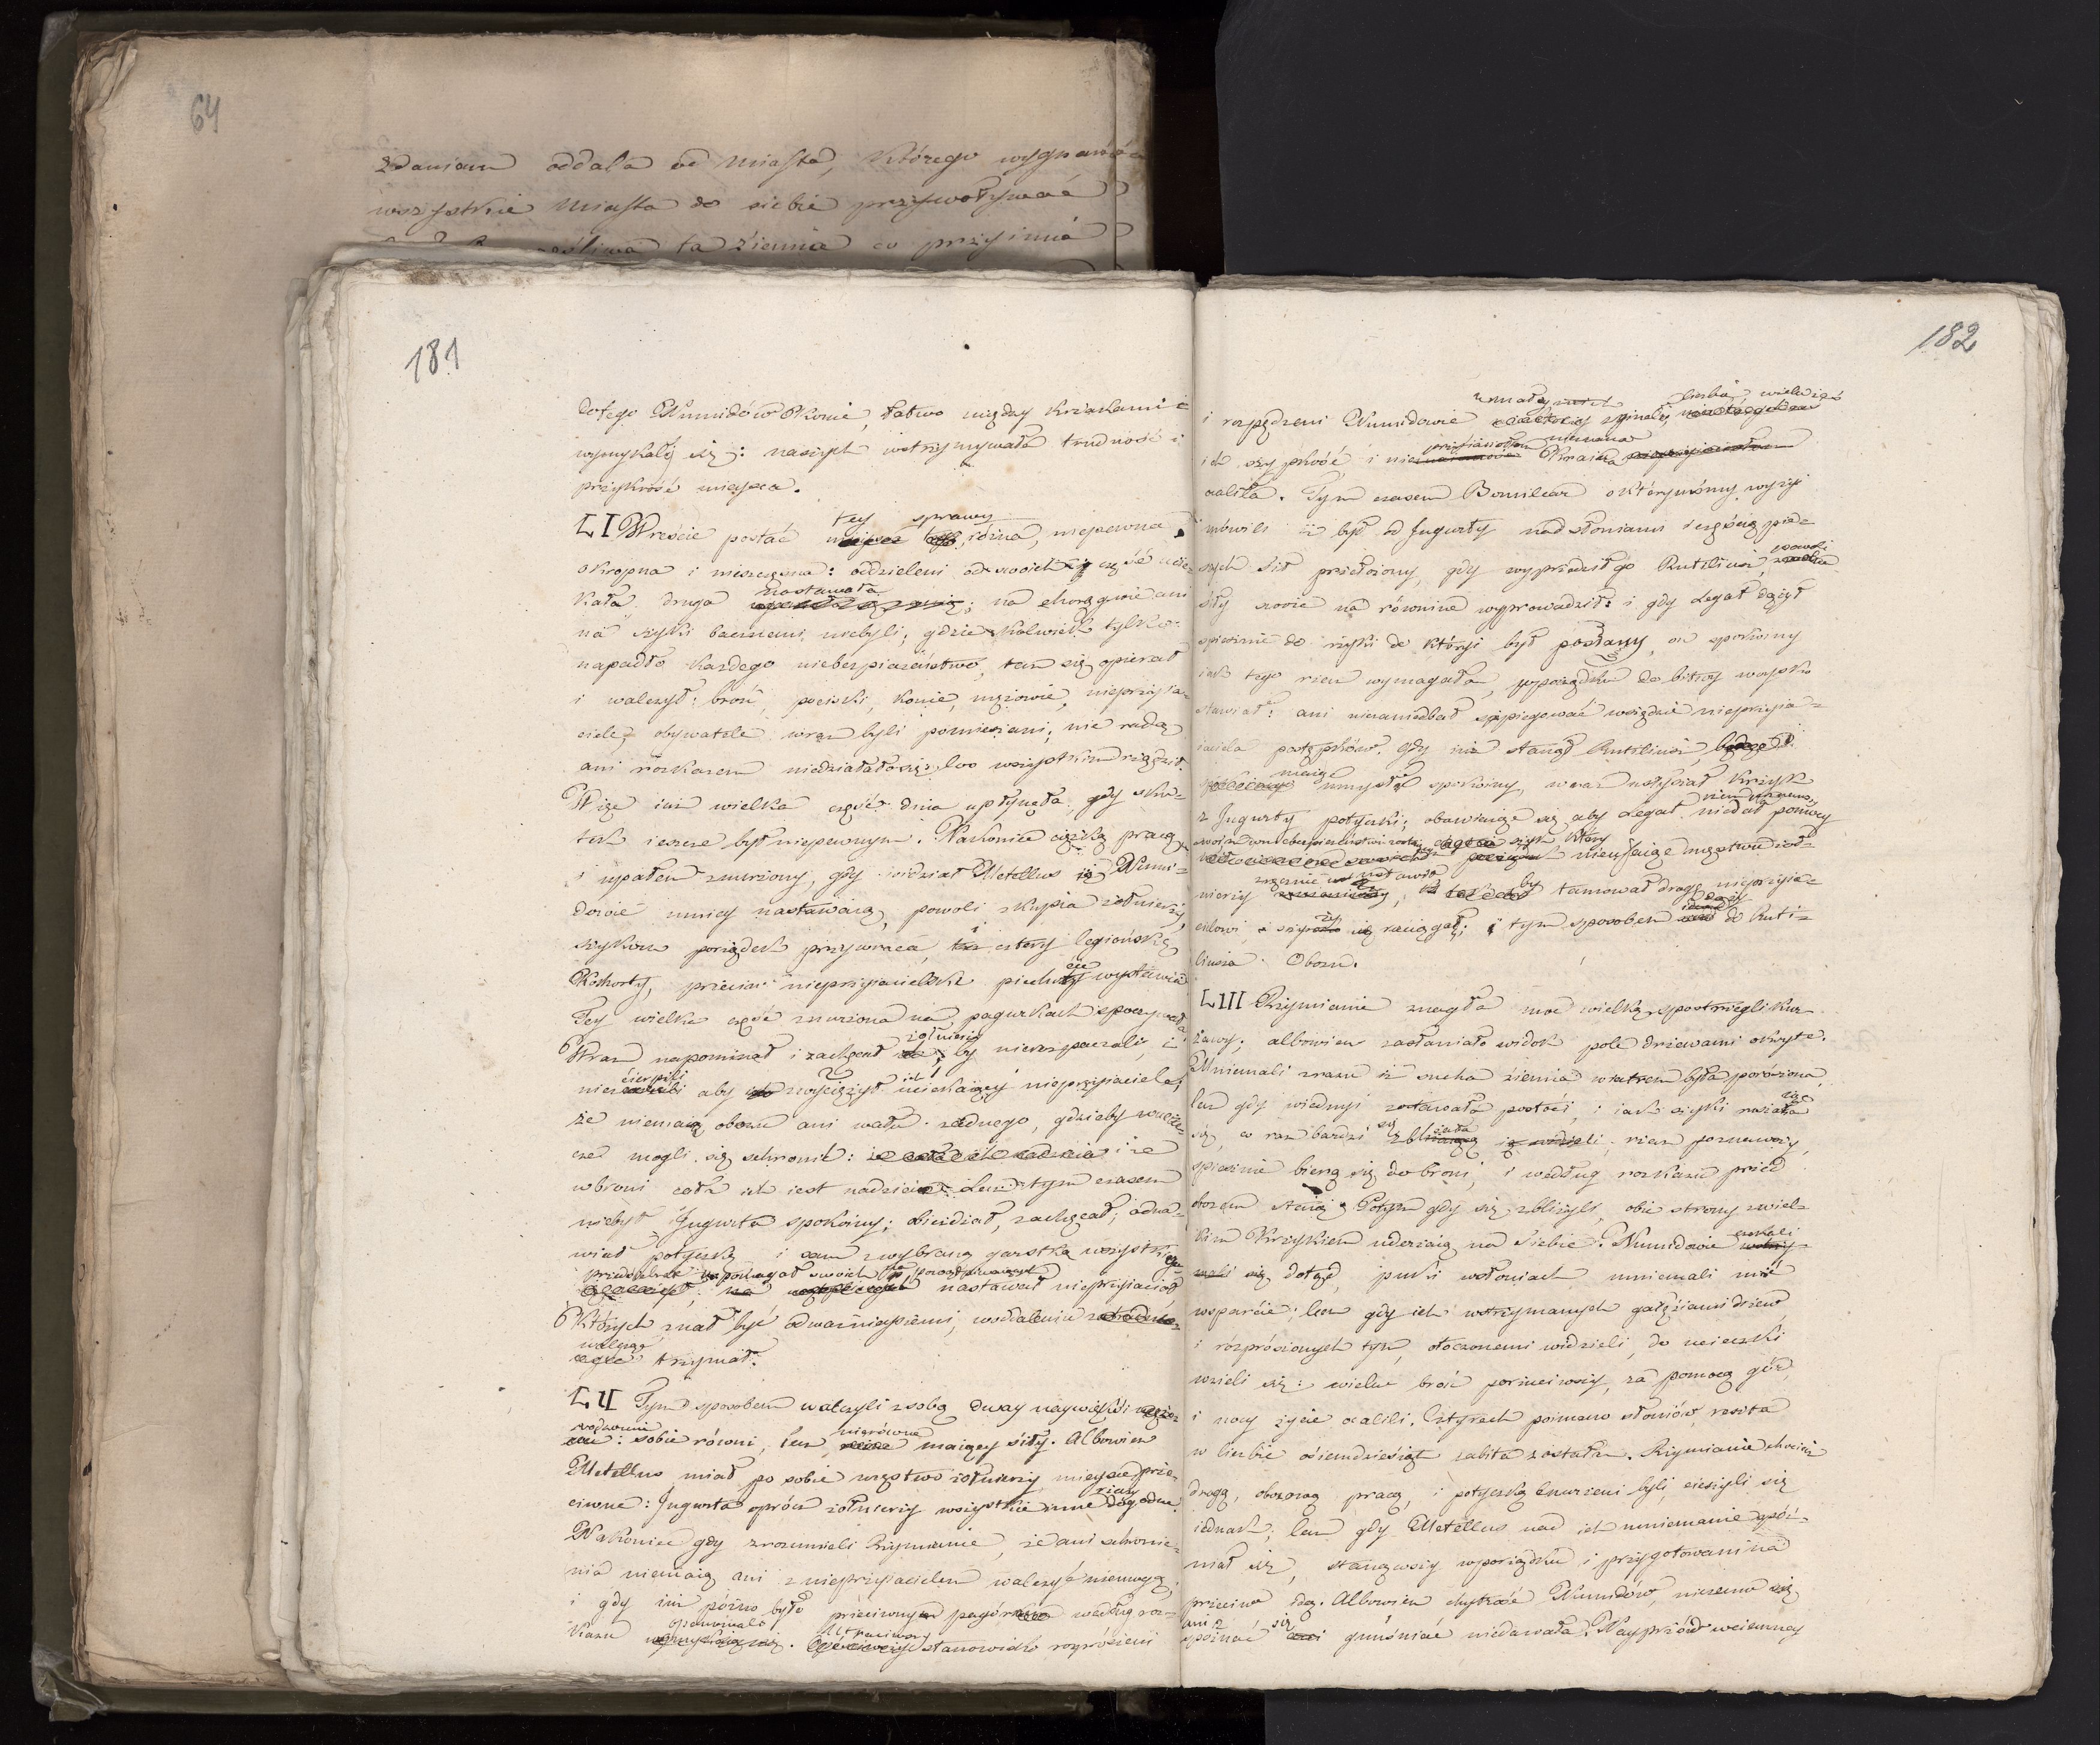 64
zdaniem oddala od Miasta, którego wygnańca
wszystkie Miasta do siebie przywoływać
ta ziemia co przyimie
181
do tego Numidów Konie, łatwo między krzakami
wymykały się: naszych wstrzymywała trudność i
przykrość mieysca.
LI Wreście postać tey sprawy różna, niepewna,
okropna i nieszczęsna: oddzieleni od swoich część ucie-
kała, druga nastawała; na chorągwie ani
na szyki bacznemi niebyli; gdzie kolwiek tylko
napadło każdego niebezpieczeństwo, tam się opierał
i walczył: broń, pociski, konie, mężowie, nieprzyia-
ciele, obywatele wraz byli pomieszani; nie radą
ani rozkazem niedziałało się; los wszystkim rządził.
Wiąc iuż wielka część dnia upłynęła; gdy sku-
tek ieszcze był niepewnym. Nakoniec ciężką pracą
i upałem znurzony, gdy widział Metellus iż Numi-
dowie mniey nastawaią, powoli skupia żołnierzy,
szykom porządek przywraca, i cztery legiońskie
Kohorty, przeciw nieprzyiacielskiey piechocie wystawia
Tey wielka część znurzona na pagurkach spoczywała
Wraz napominał i zachęcał żołnierzy, by nierozpaczali, i
nie cierpieli aby zwyciężył ich uciekaiący nieprzyiaciel;
że niemaią obozu ani wału żadnego, gdzieby
mogli się schronić: i że
w broni cała ich iest nadzieia. Lecz tym czasem
niebył Jugurta spokoiny; obieżdżał, zachęcał; odna-
wiał potyczkę i sam z wybraną garstką wszystkiego
wspomagał swoich nastawał nieprzyiaciół
Których znał być odważnieyszemi, w oddaleniu
walcząc trzymał.
LII Tym sposobem walczyli z sobą dway naywięksi
wodzowie: sobie równi, lecz nierówne maiący siły. Albowiem
Metellus, miał po sobie męstwo żołnierzy, mieysce prze-
ciwne: Jugurta oprócz żołnierzy wszystkie inne rzeczy dogodne.
Nakoniec gdy zrozumieli Rzymianie, że ani schronie-
nia niemaią ani z nieprzyiacielem walczyć niemogą;
i gdy iuż pózno było przeciwny pagórek według roz-
kazu opanowali. Utraciwszy stanowisko rozproszeni
182
i rozpędzeni Numidowie zmałey liczba, wielu iżó
ich szypkość i nie Kraina
ocaliła. Tym czasem Bomilcar o którymśmy wyżey
mówili iż był od Jugurty nad słoniami i częścią pie-
szych sił przełożony, gdy wyprzedził go Rutiliusz, powoli
siły swoie na równine wyprowadził: i gdy Legat dążył
spiesznie do rzyki do któryi był posłany, on spokoiny
iak tego rzecz wymagała, w porządku do bitwy woysko
stawiał: ani niezaniedbał szpiegować wszędzie nieprzyia-
ciela postępków. Gdy iuż stanął Rutiliusz,
maiąc umysł spokoiny, wraz usłyszał krzyk
z Jugurty potyczki; obawiaiąc się aby Legat nie dał pomocy
szyk, który nieufaiąc męstwu żoł-
nierzy ustawił, by tamował drogę nieprzyia-
cielowi, rozciągał; i tym sposobem dąży do Ruti-
liusza Obozu.
LIII Rzymianie znagła moc wielką spostrzegli ku-
żawy; albowiem zasłaniało widok pole drzewami okryte.
Mniemali zrazu iż sucha ziemia wiatrem była poruszona,
lecz gdy wiednyi zostawała postaci, i iak szyki
się, co raz bardzi się zbliżała; rzecz poznawszy,
spiesznie biorą się do broni, i według rozkazu przed
obozem staią. Potym gdy się zbliżyli, obie strony z wiel-
kim krzykiem uderzaią na Siebie. Numidowie czekali
dotąd, puki w słoniach mniemali mieć
wsparcie; lecz gdy ich wstrzymanych gałęziami drzew
i rozproszonych tym, otoczonemi widzieli, do ucieczki
wzieli się: wielu broń porzuciwszy, za pomocą gór,
i nocy życie ocalili. Cztyrech poimano słoniów, reszta
w liczbie ośiemdziesiąt zabita została. Rzymianie chociaż
drogą, obozową pracą, i potyczką znurzeni byli, cieszyli się
iednak; lecz gdy Metellus nad ich mniemanie spóź-
niał się, stanąwszy w porządku i przygotowani na
przeciw idą. Albowiem chytrość Numidów, niczemu się
spóźniać ani gnuśnieć niedawała. Nayprzód wciemney